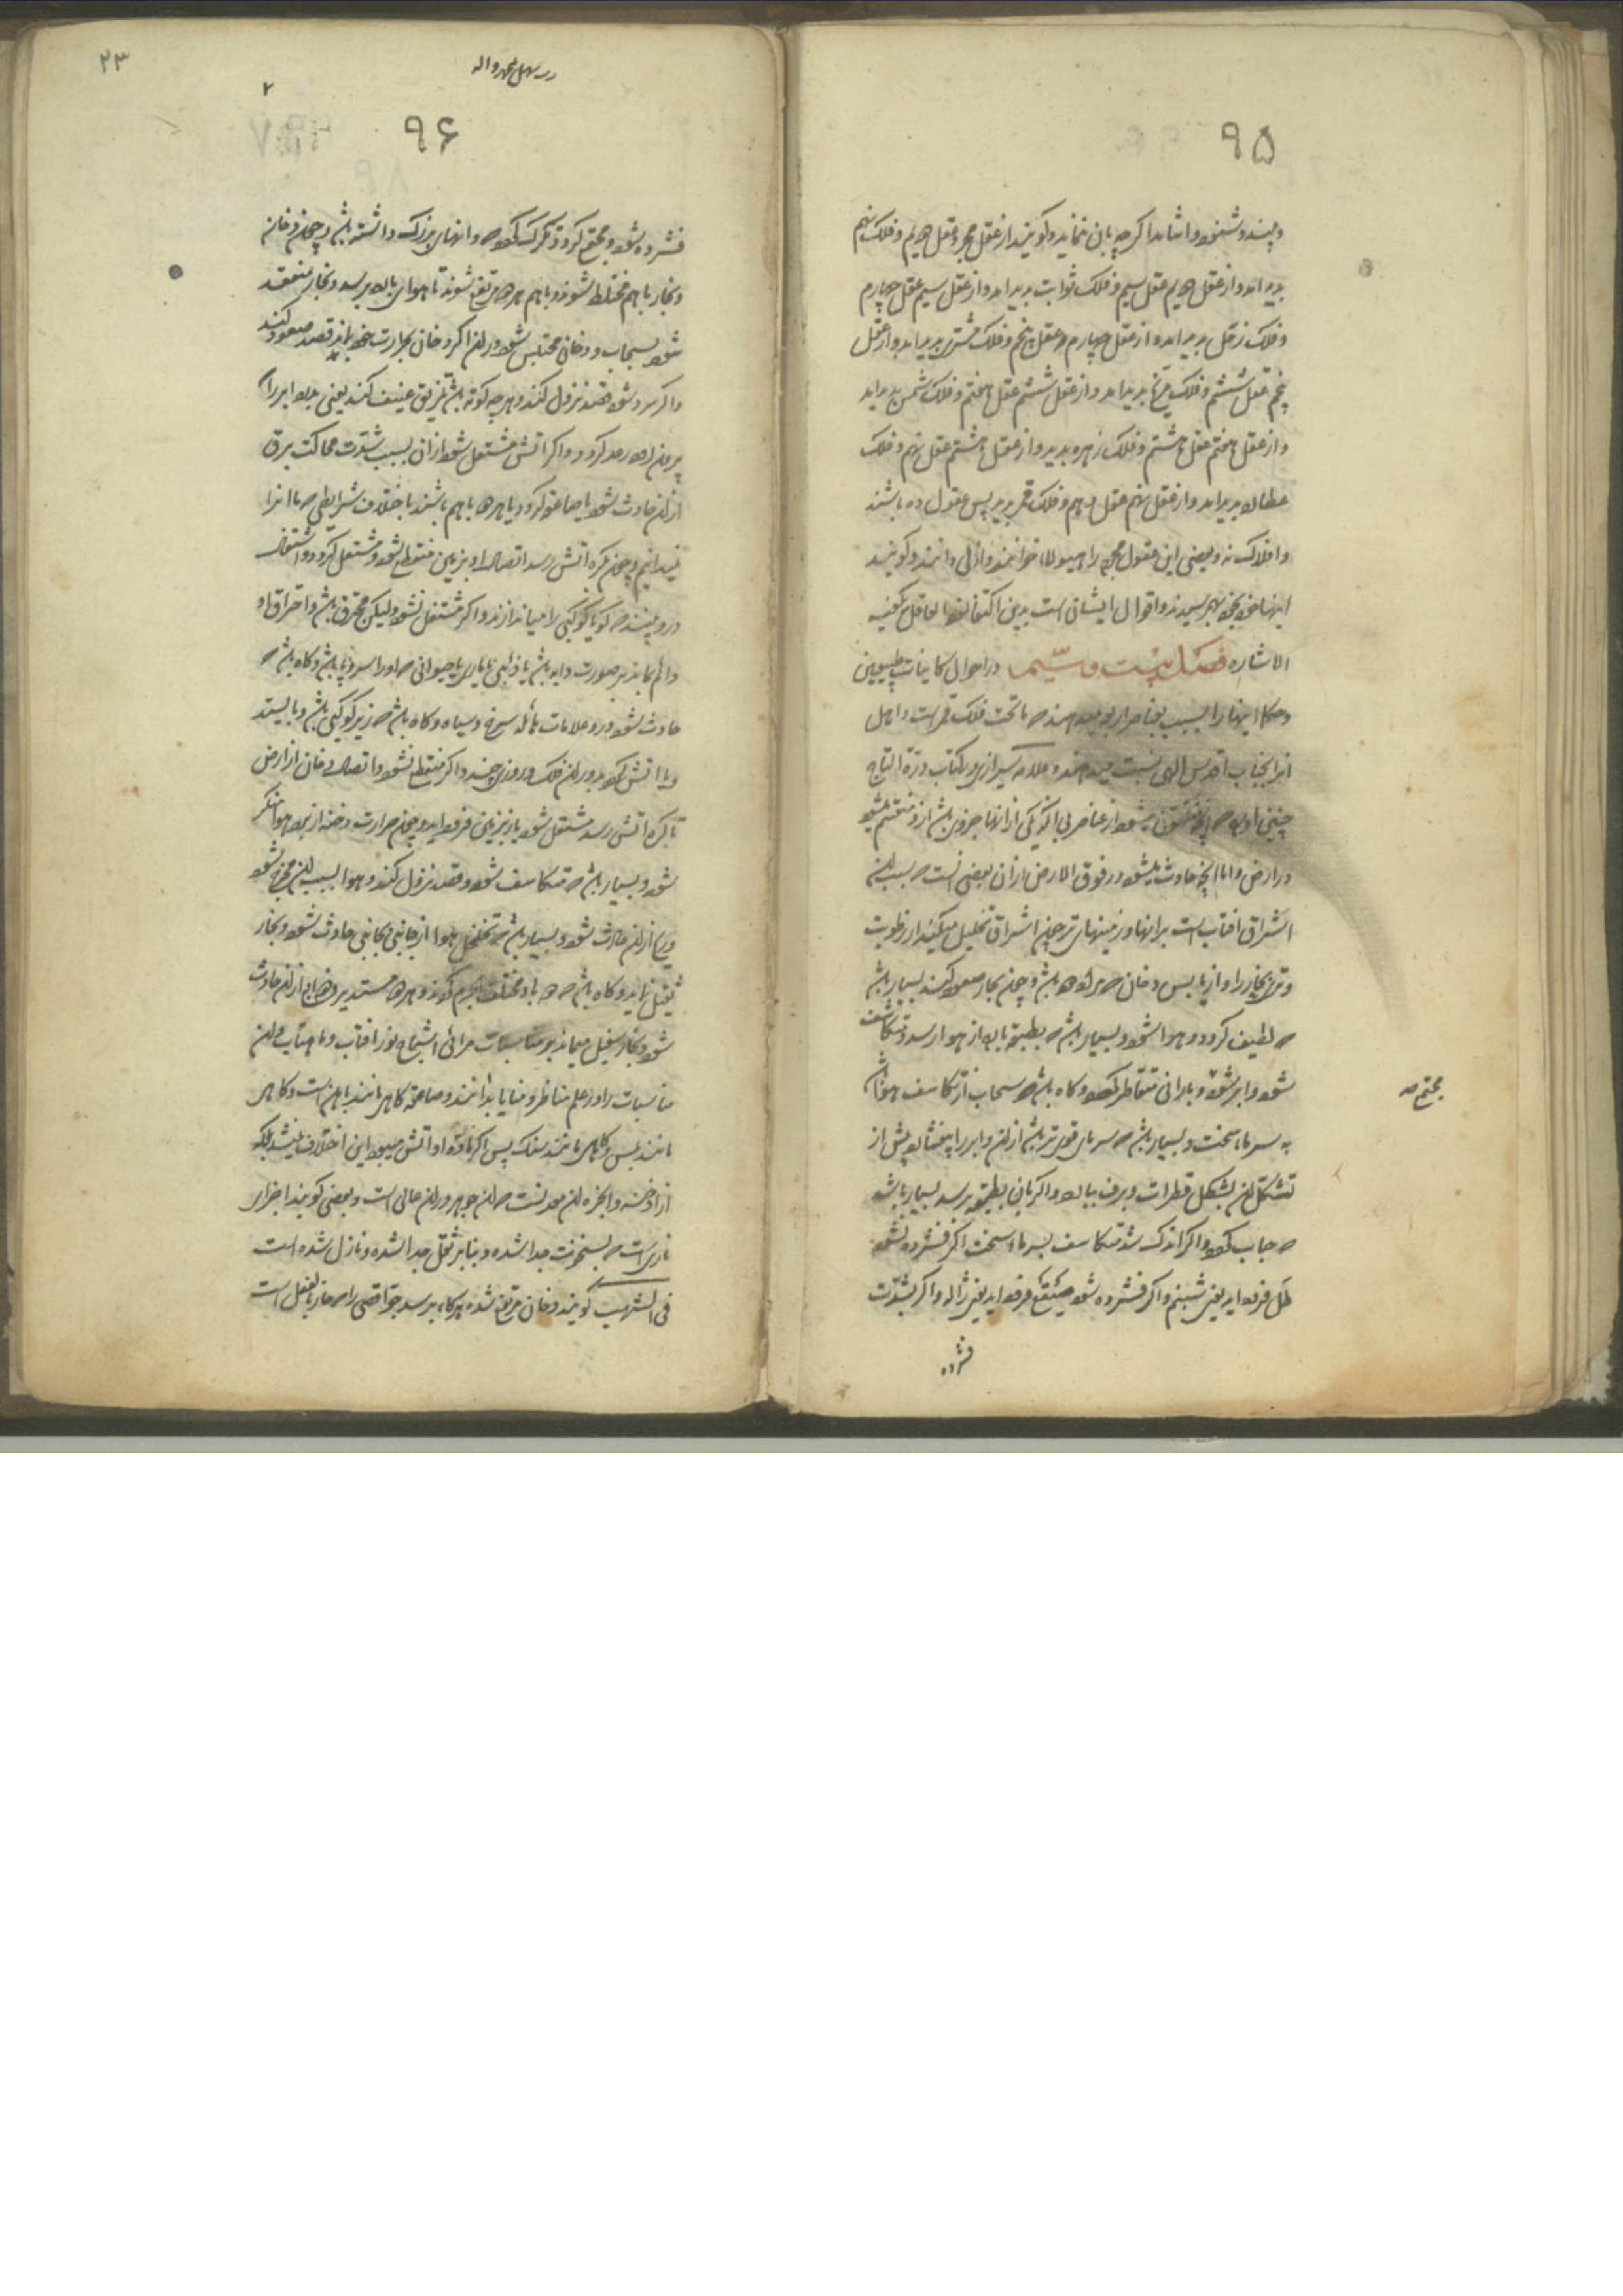 ۹۵
و بیند و شنود و اشارا اگرچه بان نماید و کویند از عقل مجرد عقل دویم و فلک نهم
پدید امد و از عقل دویم عقل سیم و فلک ثوابت پدید امد و از عقل سیم عقل چهارم
و فلک زحل پدید امد و از عقل چهارم عقل پنجم و فلک مشتری پدید امد و از عقل
پنجم عقل ششم و فلک مریخ پدید امد و از عقل ششم عقل هفتم و فلک شمس پدید امد
و از عقل هفتم عقل هشتم و فلک زهره پدید و از عقل هشتم عقل نهم و فلک
عطارد پدید امد و از عقل نهم عقل دهم و فلک قمر پدید پس عقول ده باشند
و افلاک نه و بعضی این عقول مجرده را هیولا خوانند و ازلی دانند و کویند
اینها خود بخود بهم رسیدند و اقوال ایشانی است بدین اکتفا نمود العاقل یکفیه
الاشاره فصل بیست و سیم در احوال کاینات طبیعیین
و حکما اینها را بسبب بعناصر اربعه میدهند که ما تحت فلک قمر است و اهل
انرا بجناب اقدس الهی نسبت میدهند و علامه شیرازی در کتاب درة التاج
چنین اورده که انچه متکون میشود از عناصر بی انکه یکی از انها جزوی باشد از و منقسم میشود
در ارض و اما انچه حادث میشود در فوق الارض از ان بعضی انست که بسبب ان
اشراق افتابست بر ابها و زمینهای تر چون اشراق تحلیل میکند از رطوبت
و تری بخار را و از یابس دخان که مراد بود باشد و چون بخار صعود کند بسیار باشد
که لطیف گردد و هوا شود و بسیار باشد که بطبقه بارده از هوا رسد و متکاثف
شود و ابر شود و بارانی متقاطر گردد و کاه باشد که سحاب از تکاثف هوا باشد
به سرما سخت و بسیار باشد که سرمای قوی تر باشد از ان و ابر را بیفشارد پیش از
تشکل ان بشکل قطرات و برف ببارد و اگر بان بطبقه نرسد بسیار باشد
که حباب گردد و اگر اندک شد متکاثف بسرما سخت اگر فشرده نشود
طل فرود اید یعنی شبنم و اگر فشرده شود صقیع فرود اید یعنی ژاله و اگر بشدت
مجتمع صه
فشرده
۲۳
۲
۹۶
فشرده شود و مجتمع گردد تگرگ گردد که دانهای بزرگ داشته باشد و چون دخان
و بخار باهم مختلط شوند و باهم هر دو مرتفع شوند تا هوای بارد برسد و بخار منعقد
شود بسحاب و دخانی محتبس شود در ان اگر دخان بحرارت خود بماند قصد صعود کند
و اگر سرد شود قصد نزول کند و هر چه کونه باشد تمزیق عنیف کند یعنی بدرد ابر را
پس از او رعد گردد و اگر اتش مشتعل شود از ان بسبب شدت محاکت برق
از ان حادث شود یا صاعقه گردد یا هر دو باهم باشند باختلاف شرایطی که ما انرا
نمیدانیم و چون بکره اتش رسد اتصال او بزمین منقطع شود و مشتعل گردد و اشتعال
در و بینند که کویا کوکبی را میاندازند و اگر مشتعل نشود و لیکن محترق باشد و احتراق او
دائم بماند بر صورت دابه باشد یا ذنبی یا ماری یا حیوانی که او را سر و پا باشد و کاه باشد که
حادث شود در و علامات هائله سرخ و سیاه و کاه باشد که زیر کوکبی باشد و بایستد
و با اتش گردد بدور ان فلک و روزی چند و اگر منقطع نشود اتصال دخان از ارض
تا بکره اتش رسد مشتعل شود باز بزمین فرود اید و چون حرارت دخنه از برد هوا منکسر
شود و بسیار باشد که متکاثف شود و قصد نزول کند و هوا بسبب ان متموج شود
و ریح از ان حادث شود و بسیار باشد که تخلخل هوا از جانبی بجانبی حادث شود و بخار
ثقیل نماید و کاه باشد که دو باد مختلف باهم گردند و هر دو مستدیر زوابع از ان حادث
شود و بخار سفیل میماند بر مناسبات مرائی اشباح نور افتاب و ماهتاب و ان
مناسبات را در علم مناظر و مرایا بدانند و صاعقه کاهی مانند اهن است و کاهی
مانند مس و کاهی مانند سنک پس اگر ماده او اتش میبود این اختلاف نمیشد بلکه
از ادخنه و ابخره ان معدنست که ان جوهر در ان حالی است و بعضی کویند اجزای
ناری است که بسخونت جدا شده و بنابر ثقل جدا شده و نازل شده است
فی الشهب کویند دخان مرتفع شده هر گاه برسد بجو اقصی را که حار بالفعل است